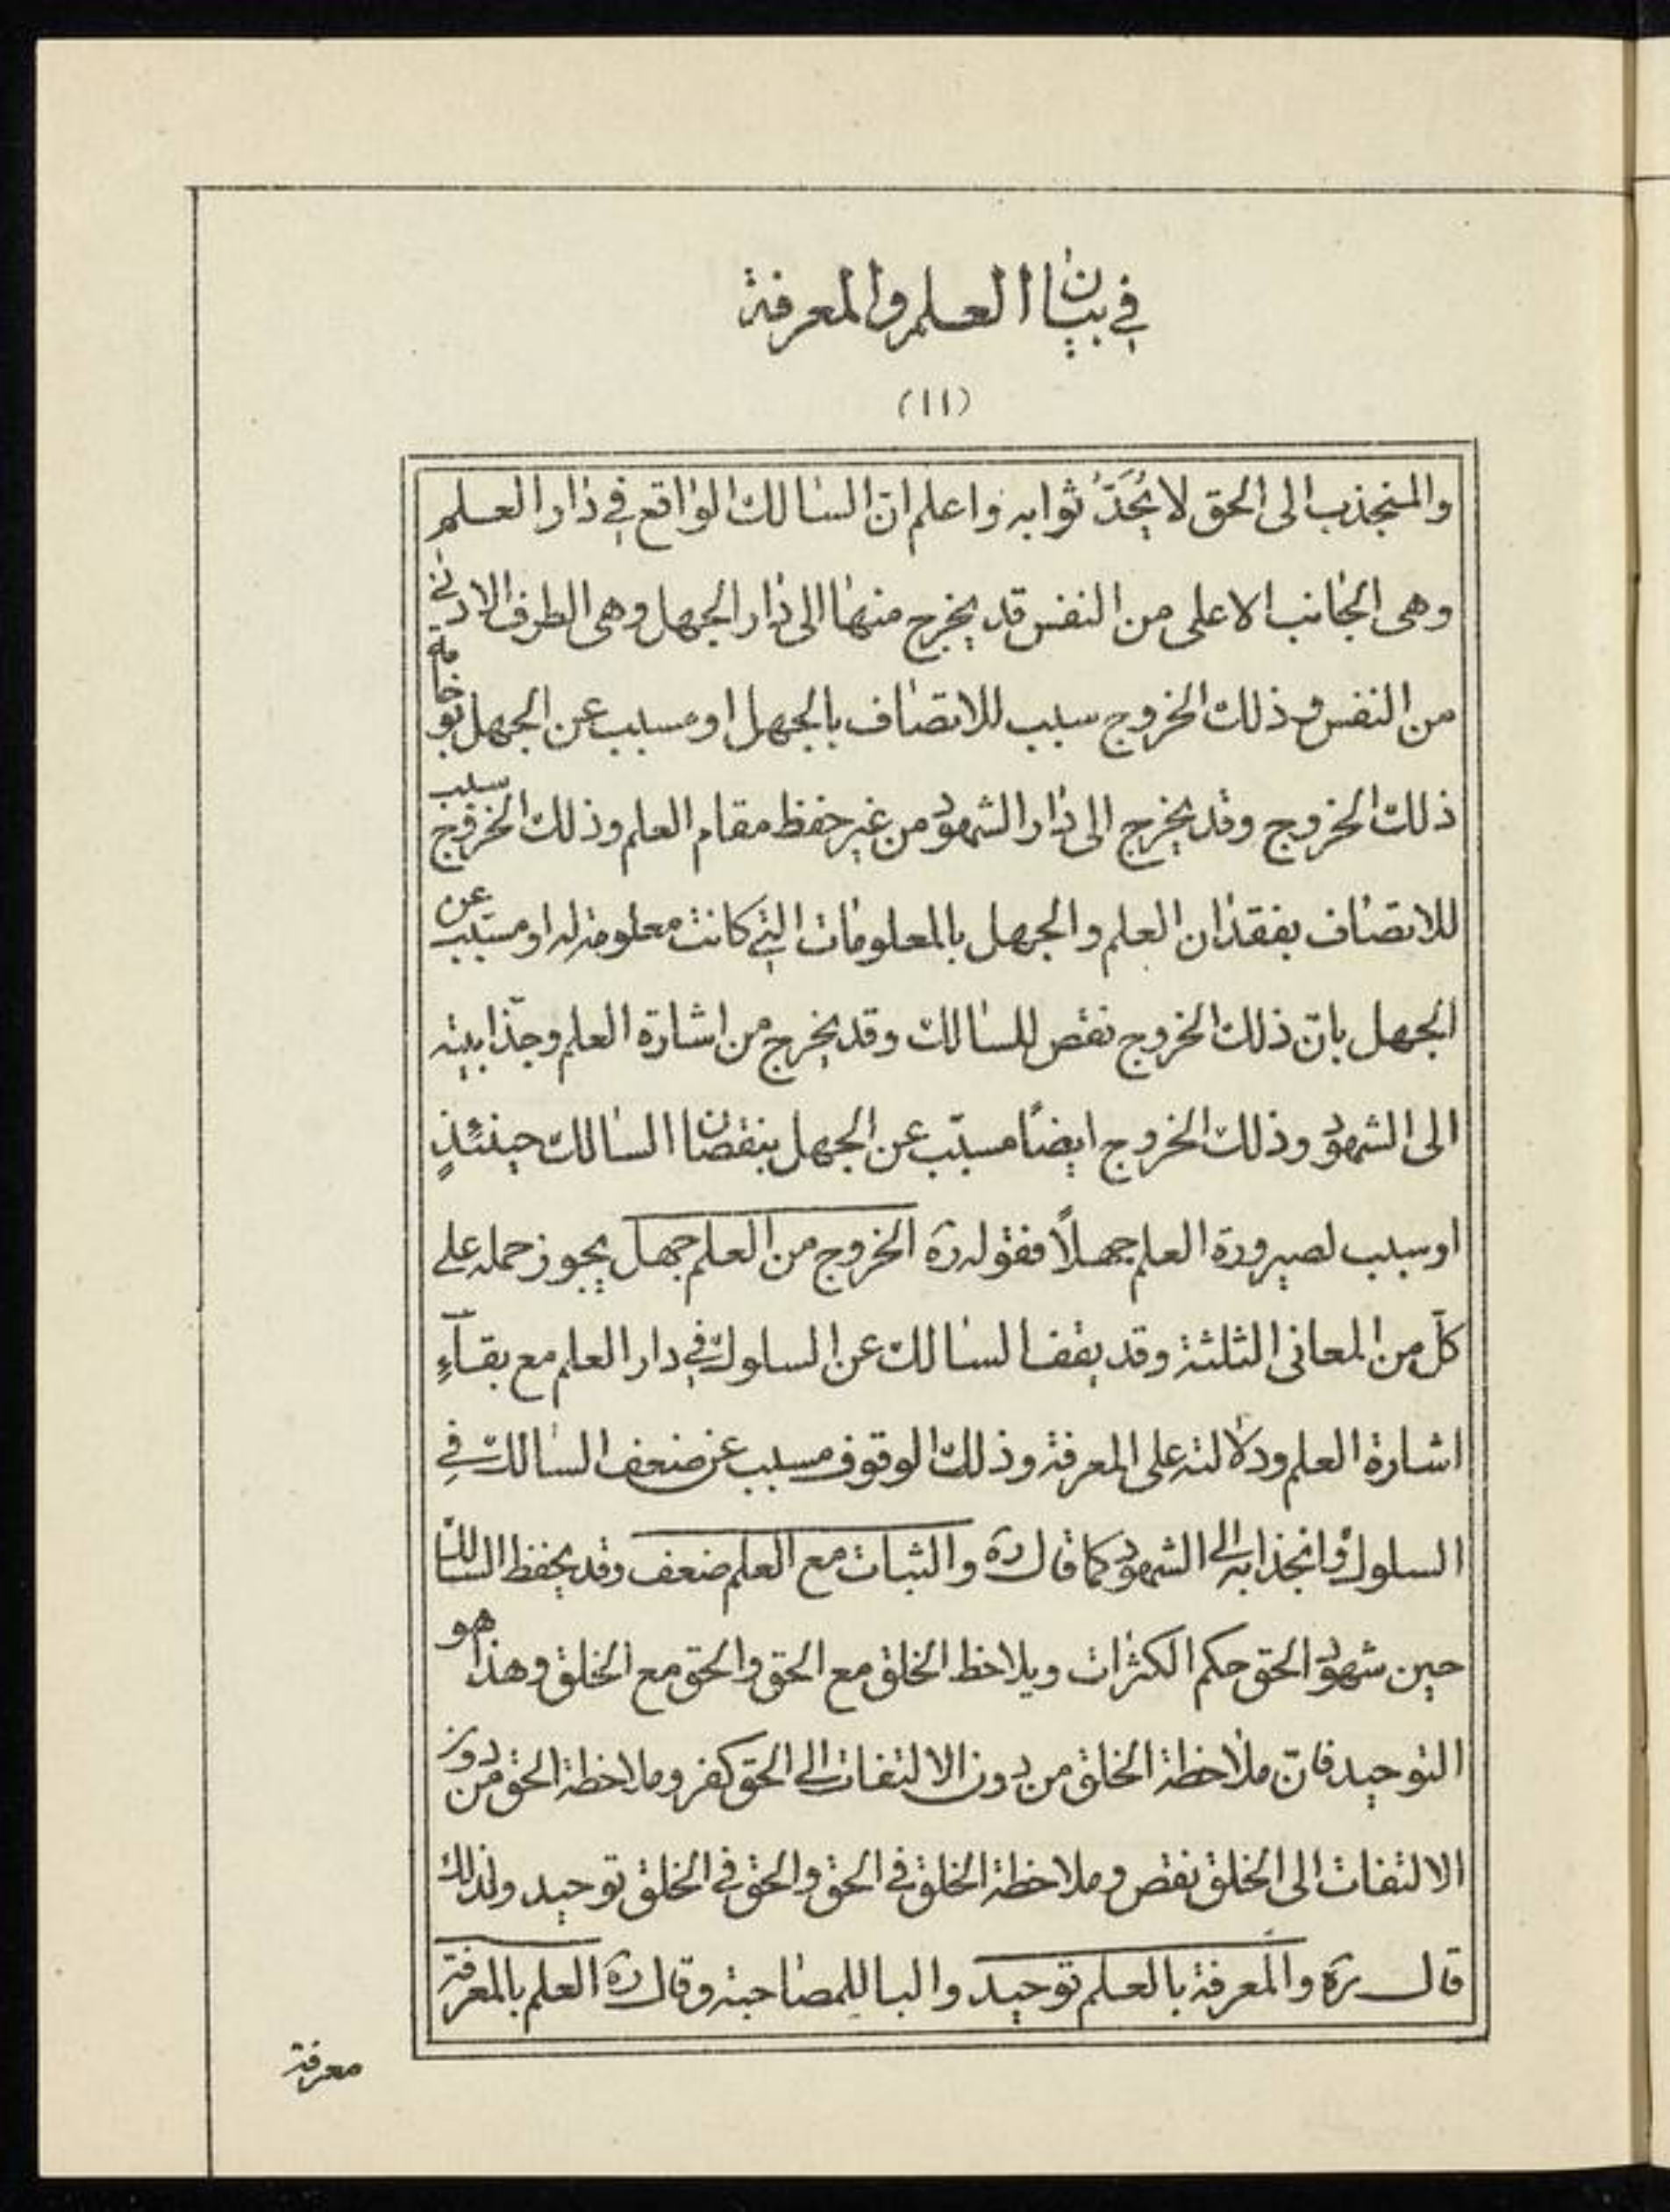 في بيان العلم والمعرفة
(۱۱)
والمنجذب الى الحق لا يُحَدُّ ثوابه واعلم انّ السالك الواقع في دار العلم
وهى الجانب الاعلى من النفس قد يخرج منها الى دار الجهل وهى الطرف الادنى
من النفس وذلك الخروج سبب للاتصاف بالجهل او مسبب عن الجهل بوخامة
ذلك الخروج وقد يخرج الى دار الشهود من غير حفظ مقام العلم وذلك الخروج سبب
للاتصاف بفقدان العلم والجهل بالمعلومات التي كانت معلومة له او مسبّب عن
الجهل بانّ ذلك الخروج نقص للسالك وقد يخرج من اشارة العلم وجذّابيته
الى الشهود وذلك الخروج ايضًا مسبّب عن الجهل بنقصان السالك حينئذٍ
او سبب لصيرورة العلم جهلًا فقوله ره الخروج من العلم جهل يجوز حمله على
كلّ من المعانى الثلثة وقد يقف السالك عن السلوك في دار العلم مع بقآءِ
اشارة العلم ودلالته على المعرفة وذلك الوقوف مسبب عن ضعف السالك في
السلوك وانجذابه الى الشهود كما قال ره والثبات مع العلم ضعف وقد يحفظ السالك
حين شهود الحق حكم الكثرات ويلاحظ الخلق مع الحق والحق مع الخلق وهذا هو
التوحيد فانّ ملاحظة الخلق من دون الالتفات الى الحق كفر وملاحظة الحق من دون
الالتفات الى الخلق نقص وملاحظة الخلق في الحق والحق في الخلق توحيد ولذلك
قال ره والمعرفة بالعلم توحيد والبا للمصاحبة وقال ره العلم بالمعرفة
معرفة